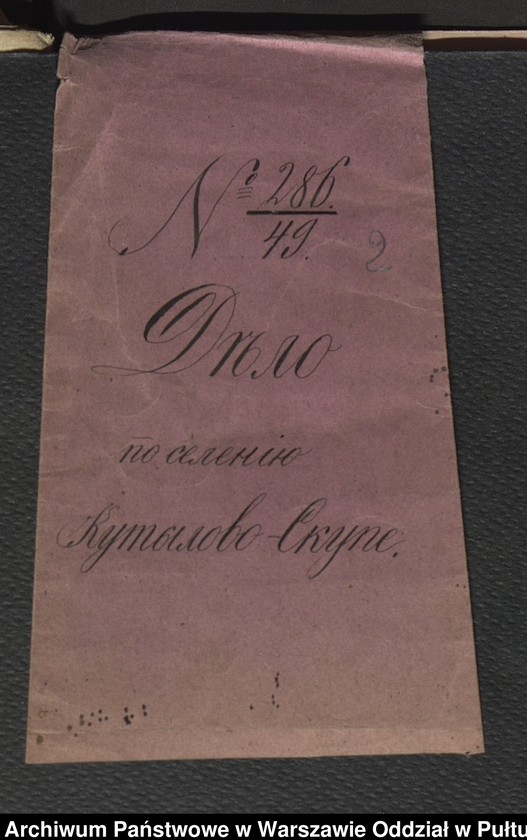 № 286.
49.
2
Дѣло
по селенію
Кутылово-Скупе.
Archiwum Państwowe w Warszawie Oddział w Pułtu